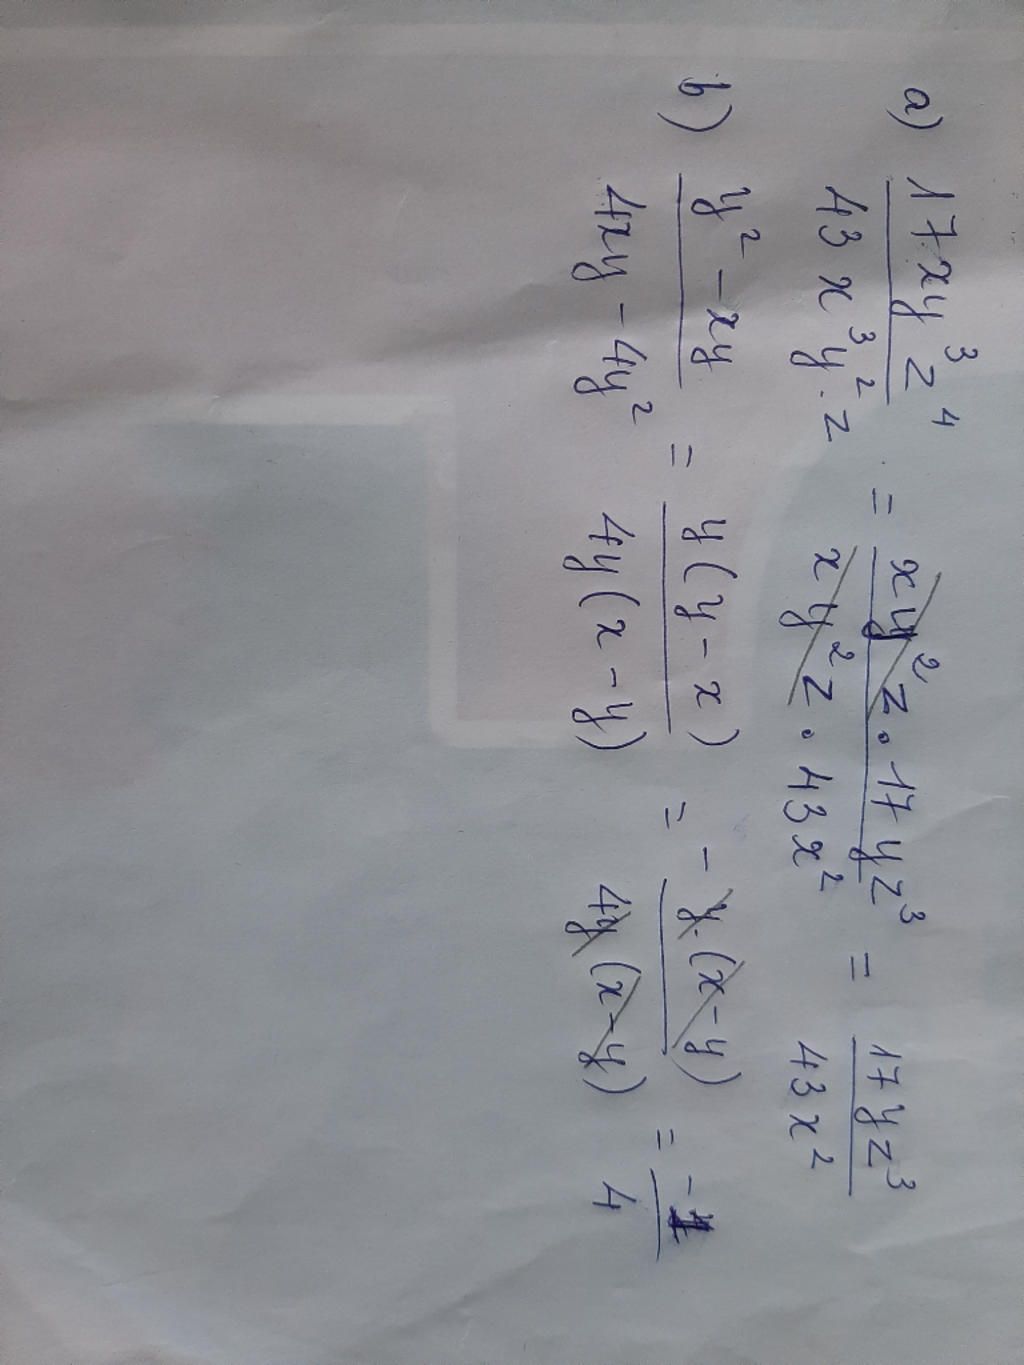 a) 17xy³z⁴ / 43x³y²·z = xy²z · 17yz³ / xy²z · 43x² = 17yz³ / 43x²
b) y² - xy / 4xy - 4y² = y(y - x) / 4y(x - y) = - y·(x - y) / 4y(x - y) = -1 / 4